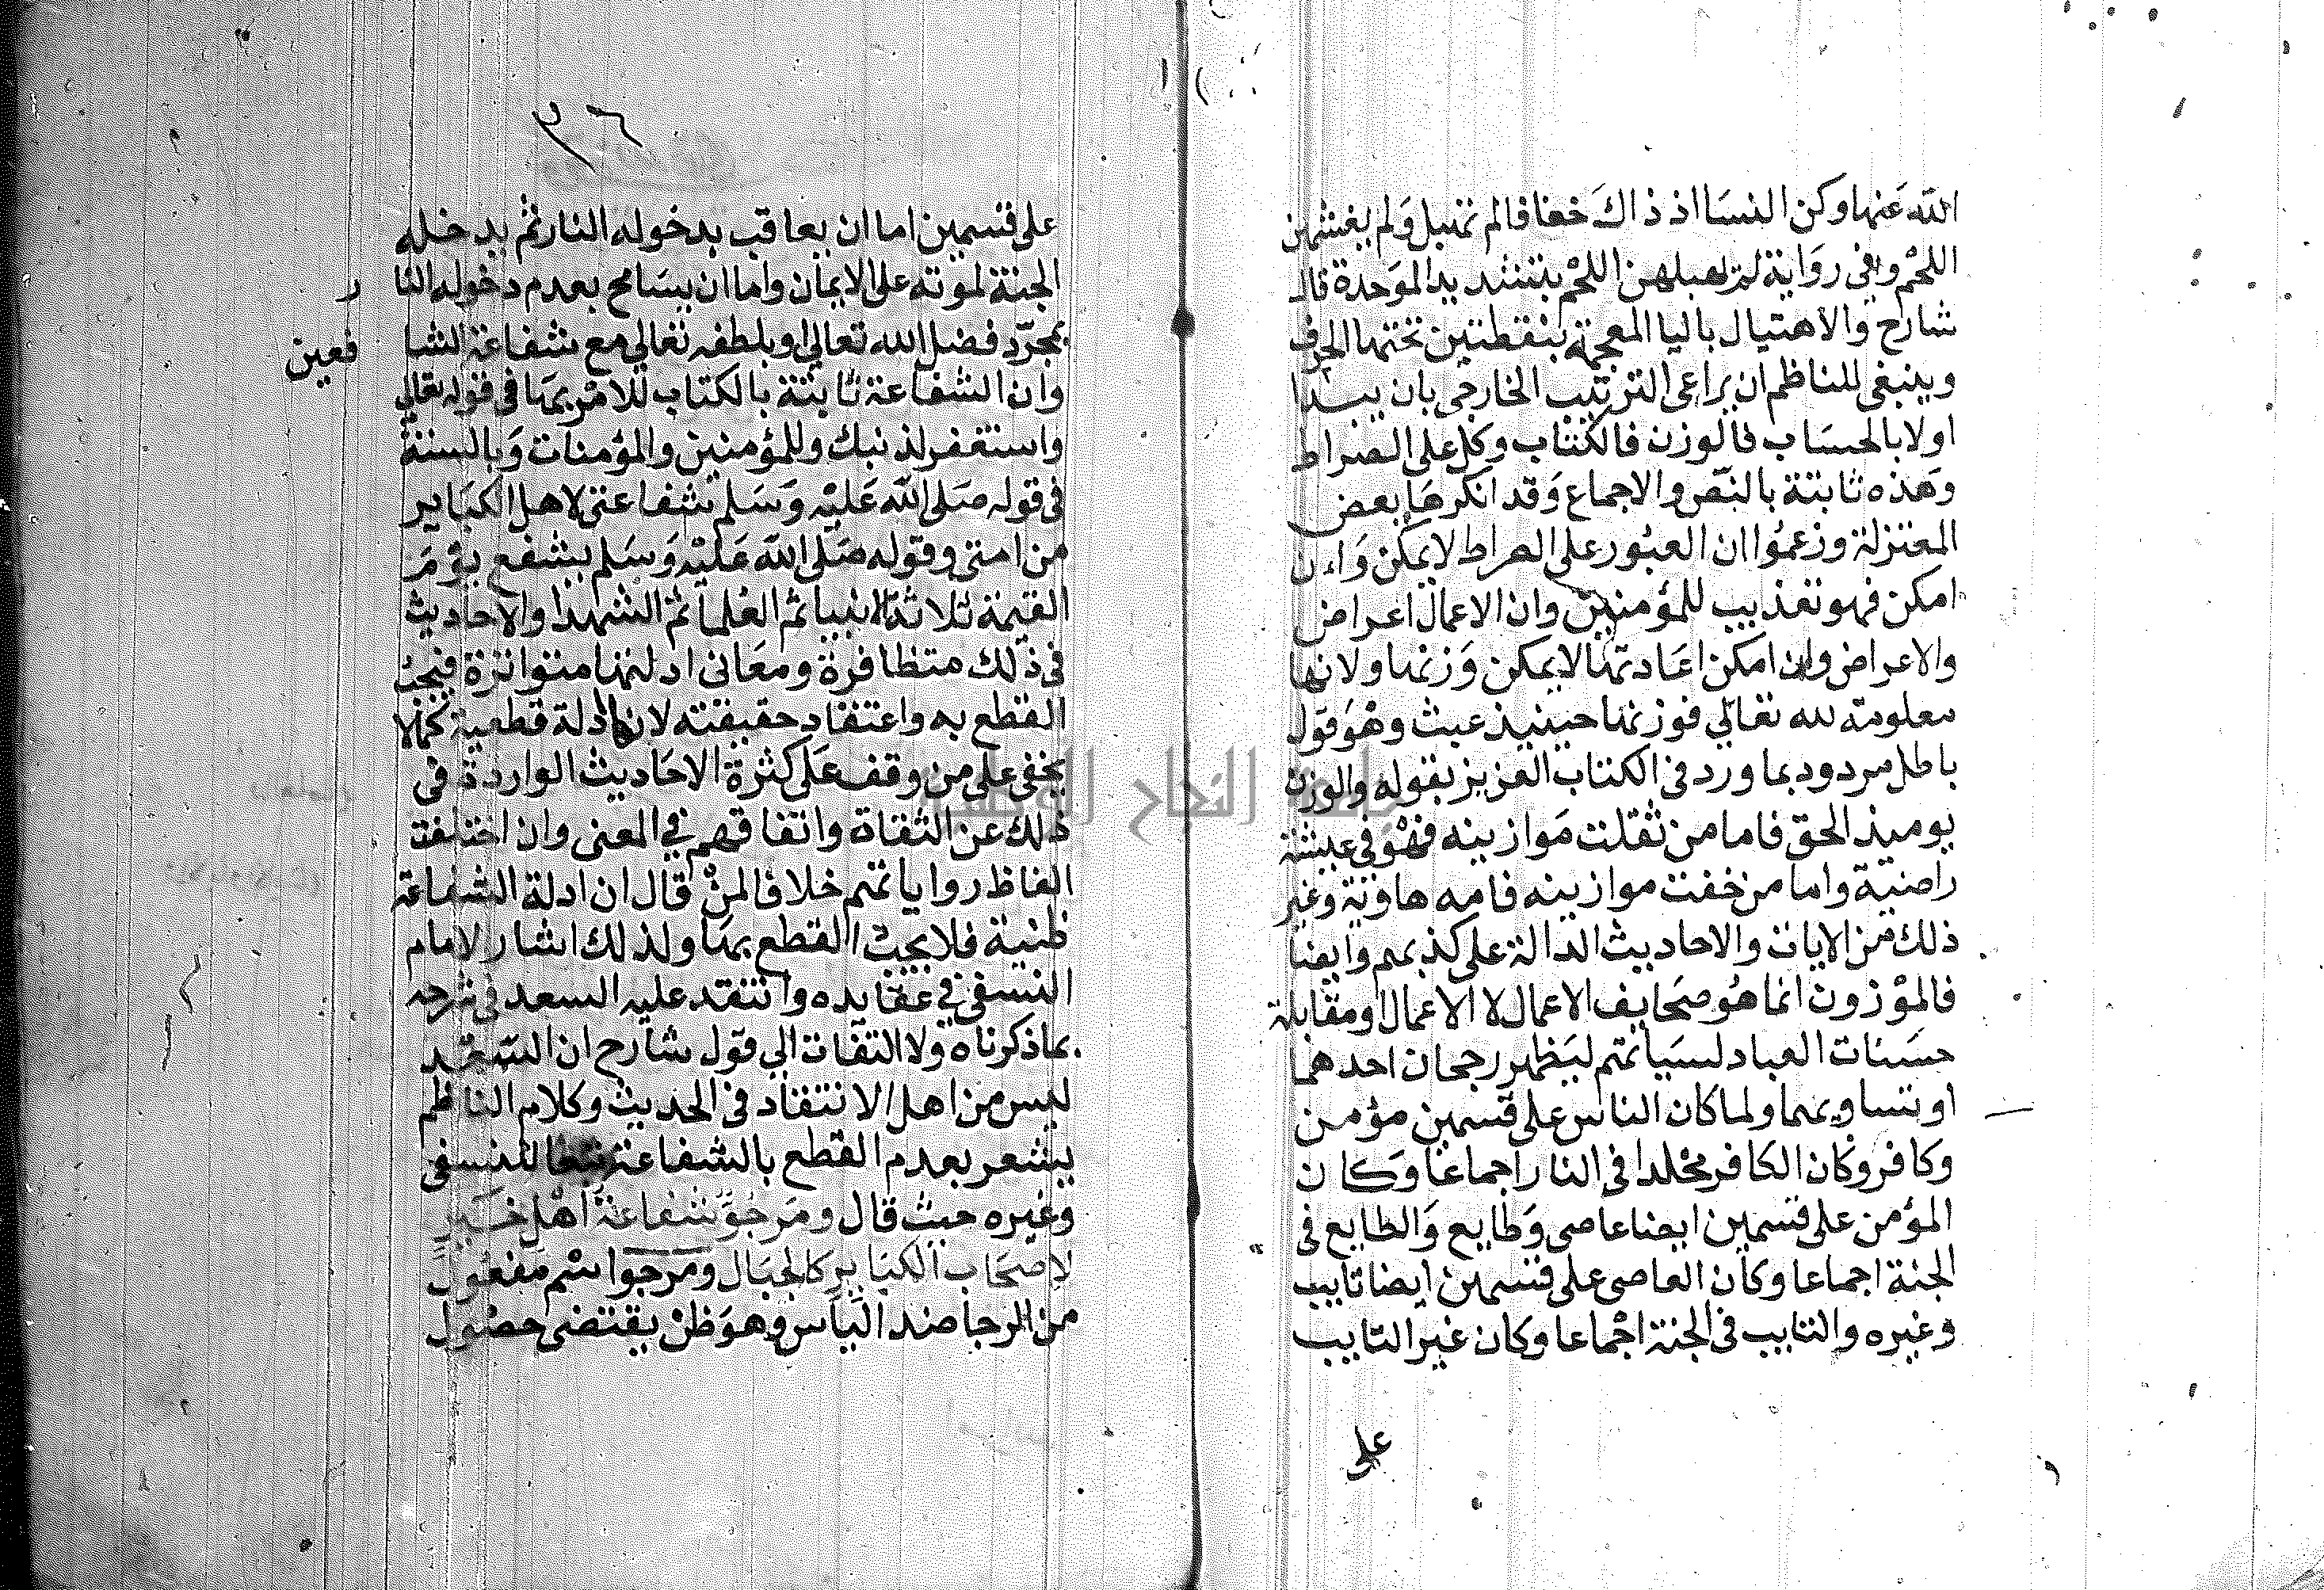 الله عنها وكن النسا اذ ذاك خفافا لم تهبل ولم يغشهن
اللحم وفي رواية لم يهبلهن اللحم بتشديد الموحدة قال
شارح والاهتيال باليا المعجمة بنقطتين تحتها الحرف
وينبغي للناظم ان يراعى الترتيب الخارجى بان يبدا
اولا بالحساب فالوزن فالكتاب وكل على الصراط
وهذه ثابتة بالنص والاجماع وقد انكرها بعض
المعتزلة وزعموا ان العبور على الصراط لا يمكن وان
امكن فهو تعذيب للمؤمنين وان الاعمال اعراض
والاعراض وان امكن اعادتها لا يمكن وزنها ولانها
معلومة لله تعالي فوزنها حينيذ عبث وهو قول
باطل مردود بما ورد فى الكتاب العزيز بقوله والوزن
يوميذ الحق فاما من ثقلت موازينه فهو في عيشة
راضية واما من خفت موازينه فامه هاوية وغير
ذلك من الايات والاحاديث الدالة على كذبهم وايضا
فالموزون انما هو صحايف الاعمال لا الاعمال او مقابلة
حسنات العباد لسيياتهم ليظهر رجحان احدهما
او تساويهما ولما كان الناس على قسمين مؤمن
وكافر وكان الكافر مخلدا فى النار اجماعا وكان
المؤمن على قسمين ايضا عاصى وطايع والطايع فى
الجنة اجماعا وكان العاصى على قسمين ايضا تايب
وغيره والتايب فى الجنة اجماعا وكان غير التايب
على
٣٦
على قسمين اما ان يعاقب بدخوله النار ثم يدخله
الجنة لموته على الايمان واما ان يسامح بعدم دخوله النا
ر
بمجرد فضل الله تعالي او بلطفه تعالي مع شفاعة الشا
فعين
وان الشفاعة ثابتة بالكتاب للامر بها فى قوله تعالى
واستغفر لذنبك وللمؤمنين والمؤمنات وبالسنة
فى قوله صلى الله عليه وسلم شفاعتى لاهل الكباير
من امتى وقوله صلى الله عليه وسلم يشفع يوم
القيمة ثلاثة الانبيا ثم العلما ثم الشهدا والاحاديث
فى ذلك متظافرة ومعانى ادلتها متواترة فيجب
القطع به واعتقاد حقيقته لان الادلة قطعية كما لا
يخفى على من وقف على كثرة الاحاديث الواردة فى
ذلك عن الثقاة واتفاقهم في المعنى وان اختلفت
الفاظ رواياتهم خلافا لمن قال ان ادلة الشفاعة
ظنية فلا يجب القطع بها ولذلك اشار الامام
النسفى في عقايده وانتقد عليه السعد فى شرحه
بما ذكرناه ولا التفات الي قول شارح ان السعد
ليس من اهل الانتقاد فى الحديث وكلام الناظم
يشعر بعدم القطع بالشفاعة تبعا للنسفى
وغيره حيث قال ومرجو شفاعة اهل خير
لاصحاب الكباير كالجبال ومرجوا اسم مفعول
من الرجا ضد الياس وهو ظن يقتضى حصول